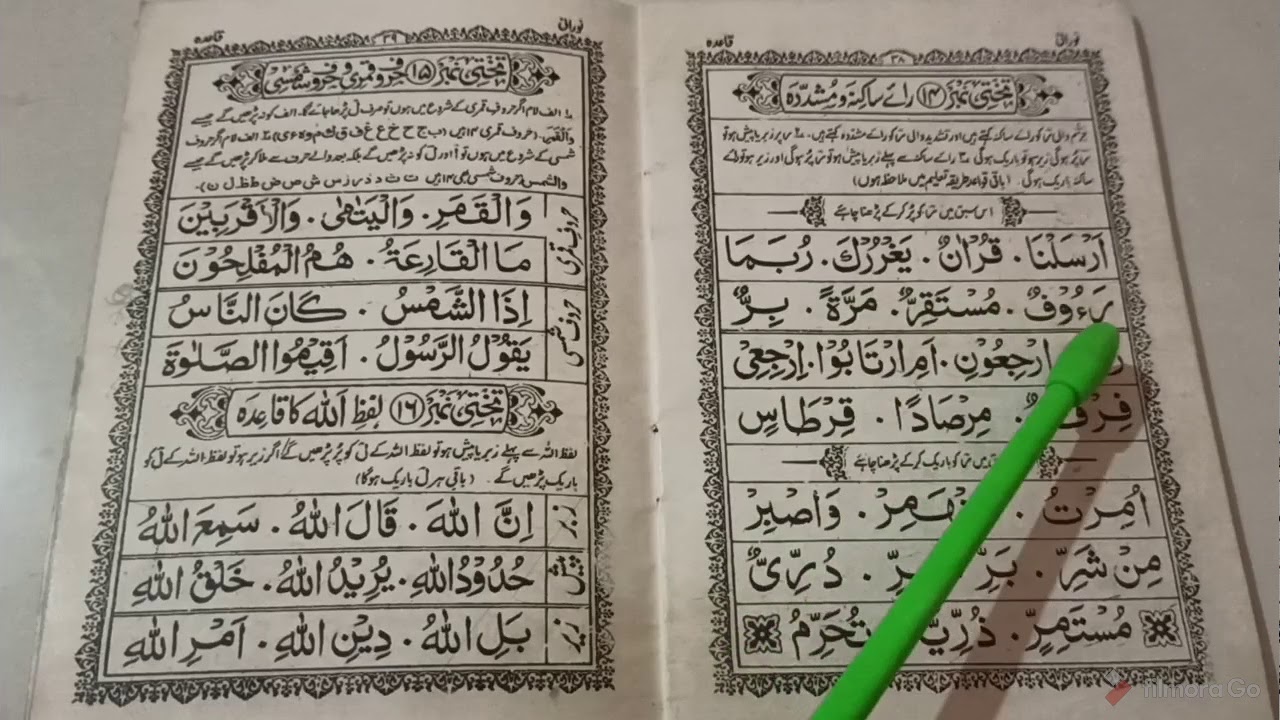 نورانی
۳۸
قاعدہ
تختی نمبر (۱۴) رائے ساکنہ و مشدّدہ
جزم والی را کو رائے ساکنہ کہتے ہیں اور تشدید والی را کو رائے مشددہ کہتے ہیں۔ را پر زبر یا پیش ہو تو
را پُر ہوگی زیر ہو تو باریک ہوگی رائے ساکنہ سے پہلے زبر یا پیش ہو تو را پُر ہوگی اور زیر ہو تو رائے
ساکنہ باریک ہوگی۔ (باقی قواعد طریقہ تعلیم میں ملاحظہ ہوں)
اس سبق میں را کو پُر کرکے پڑھنا چاہئے
اَرْسَلْنَا . قُرْاٰنٌ . یَغْرُرْكَ . رُبَمَا
رَءُوْفٌ . مُسْتَقِرٌّ . مَرَّةً . بِرٌّ
ارْجِعُوْنِ . اَمِ ارْتَابُوْا . اِرْجِعِیْ
مِرْصَادًا . قِرْطَاسٍ
میں را کو باریک کرکے پڑھنا چاہئے
اُمِرْتُ . وَاصْبِرْ
مِنْ شَرِّ . دُرِّیٌّ
مُسْتَمِرٍّ . تُحَرِّمُ
نورانی
۳۹
قاعدہ
تختی نمبر (۱۵) حروف قمری و حروف شمسی
الف لام اگر حروف قمری کے شروع میں ہوں تو صرف ل پڑھا جائے گا۔ الف کو نہ پڑھیں گے جیسے
والقمر۔ (حروف قمری ۱۴ ہیں (ب ج ح خ ع غ ف ق ك م و ه ء ی) الف لام اگر حروف
شمسی کے شروع میں ہوں تو ا اور ل کو نہ پڑھیں گے بلکہ بعد والے حرف سے ملا کر پڑھیں گے جیسے
والشمس (حروف شمسی بھی ۱۴ ہیں ت ث د ذ ر ز س ش ص ض ط ظ ل ن)۔
حروف قمری
وَالْقَمَرِ . وَالْیَتٰمٰی . وَالْاَقْرَبِیْنَ
مَا الْقَارِعَةُ . هُمُ الْمُفْلِحُوْنَ
حروف شمسی
اِذَا الشَّمْسُ . كَانَ النَّاسُ
یَقُوْلُ الرَّسُوْلُ . اَقِیْمُوا الصَّلٰوةَ
تختی نمبر (۱۶) لفظ اللہ کا قاعدہ
لفظ اللہ سے پہلے زبر یا پیش ہو تو لفظ اللہ کے ل کو پُر پڑھیں گے اگر زیر ہو تو لفظ اللہ کے ل کو
باریک پڑھیں گے۔ (باقی ہر ل باریک ہوگا)
زبر
اِنَّ اللّٰهَ . قَالَ اللّٰهُ . سَمِعَ اللّٰهُ
پیش
حُدُوْدُ اللّٰهِ . یُرِیْدُ اللّٰهُ . خَلْقُ اللّٰهِ
زیر
بَلِ اللّٰهُ . دِیْنِ اللّٰهِ . اَمْرِ اللّٰهِ
filmora Go